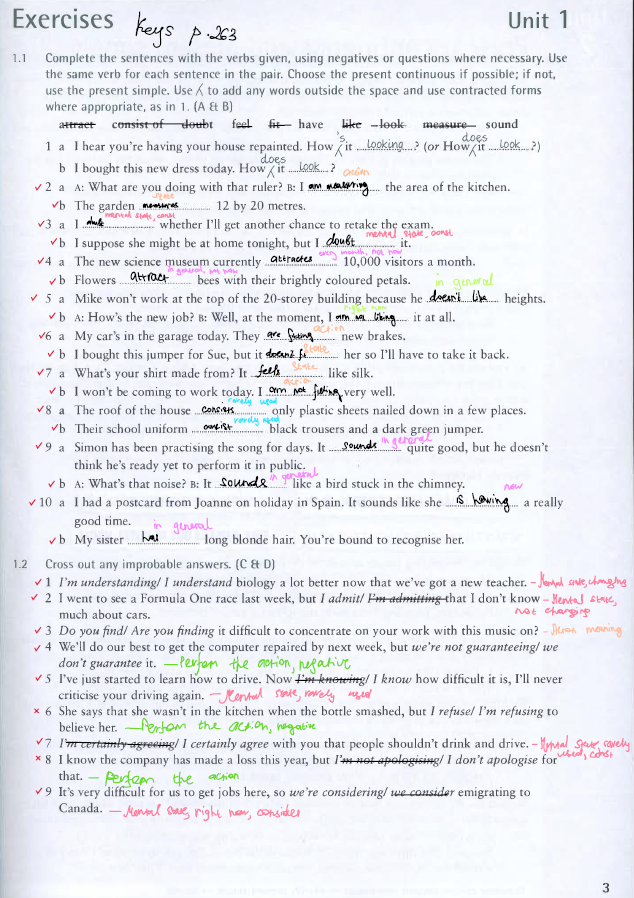 Exercises keys p. 263 Unit 1
1.1 Complete the sentences with the verbs given, using negatives or questions where necessary. Use
the same verb for each sentence in the pair. Choose the present continuous if possible; if not,
use the present simple. Use ⁁ to add any words outside the space and use contracted forms
where appropriate, as in 1. (A & B)
attract consist of doubt feel fit have like look measure sound
1 a I hear you're having your house repainted. How ⁁'s it ....looking....? (or How ⁁does it ....look....?)
b I bought this new dress today. How ⁁does it ....look....?
action
✓ 2 a A: What are you doing with that ruler? B: I am measuring the area of the kitchen.
state
✓ b The garden measures 12 by 20 metres.
mental state, const
✓ 3 a I doubt whether I'll get another chance to retake the exam.
mental state, const
✓ b I suppose she might be at home tonight, but I doubt it.
every month, not now
✓ 4 a The new science museum currently attractes 10,000 visitors a month.
in general, not now
✓ b Flowers attract bees with their brightly coloured petals.
in general
✓ 5 a Mike won't work at the top of the 20-storey building because he doesn't like heights.
right now
✓ b A: How's the new job? B: Well, at the moment, I am not liking it at all.
action
✓ 6 a My car's in the garage today. They are fitting new brakes.
state
✓ b I bought this jumper for Sue, but it doesn't fit her so I'll have to take it back.
state
✓ 7 a What's your shirt made from? It feels like silk.
action
✓ b I won't be coming to work today. I am not very well.
rarely used
✓ 8 a The roof of the house consists only plastic sheets nailed down in a few places.
rarely used
✓ b Their school uniform consist black trousers and a dark green jumper.
in general
✓ 9 a Simon has been practising the song for days. It sounds quite good, but he doesn't
think he's ready yet to perform it in public.
in general
✓ b A: What's that noise? B: It sounds like a bird stuck in the chimney.
now
✓ 10 a I had a postcard from Joanne on holiday in Spain. It sounds like she is having a really
good time.
in general
✓ b My sister has long blonde hair. You're bound to recognise her.
1.2 Cross out any improbable answers. (C & D)
✓ 1 I'm understanding/ I understand biology a lot better now that we've got a new teacher. – Mental state, changing
✓ 2 I went to see a Formula One race last week, but I admit/ I'm admitting that I don't know – Mental state,
much about cars. not changing
✓ 3 Do you find/ Are you finding it difficult to concentrate on your work with this music on? –
✓ 4 We'll do our best to get the computer repaired by next week, but we're not guaranteeing/ we
don't guarantee it. – Perform the action, negative
✓ 5 I've just started to learn how to drive. Now I'm knowing/ I know how difficult it is, I'll never
criticise your driving again. – Mental state, rarely used
× 6 She says that she wasn't in the kitchen when the bottle smashed, but I refuse/ I'm refusing to
believe her. – Perform the action, negative
✓ 7 I'm certainly agreeing/ I certainly agree with you that people shouldn't drink and drive. – Mental state, rarely
used, const
× 8 I know the company has made a loss this year, but I'm not apologising/ I don't apologise for
that. – Perform the action
✓ 9 It's very difficult for us to get jobs here, so we're considering/ we consider emigrating to
Canada. – Mental state, right now, consider
3